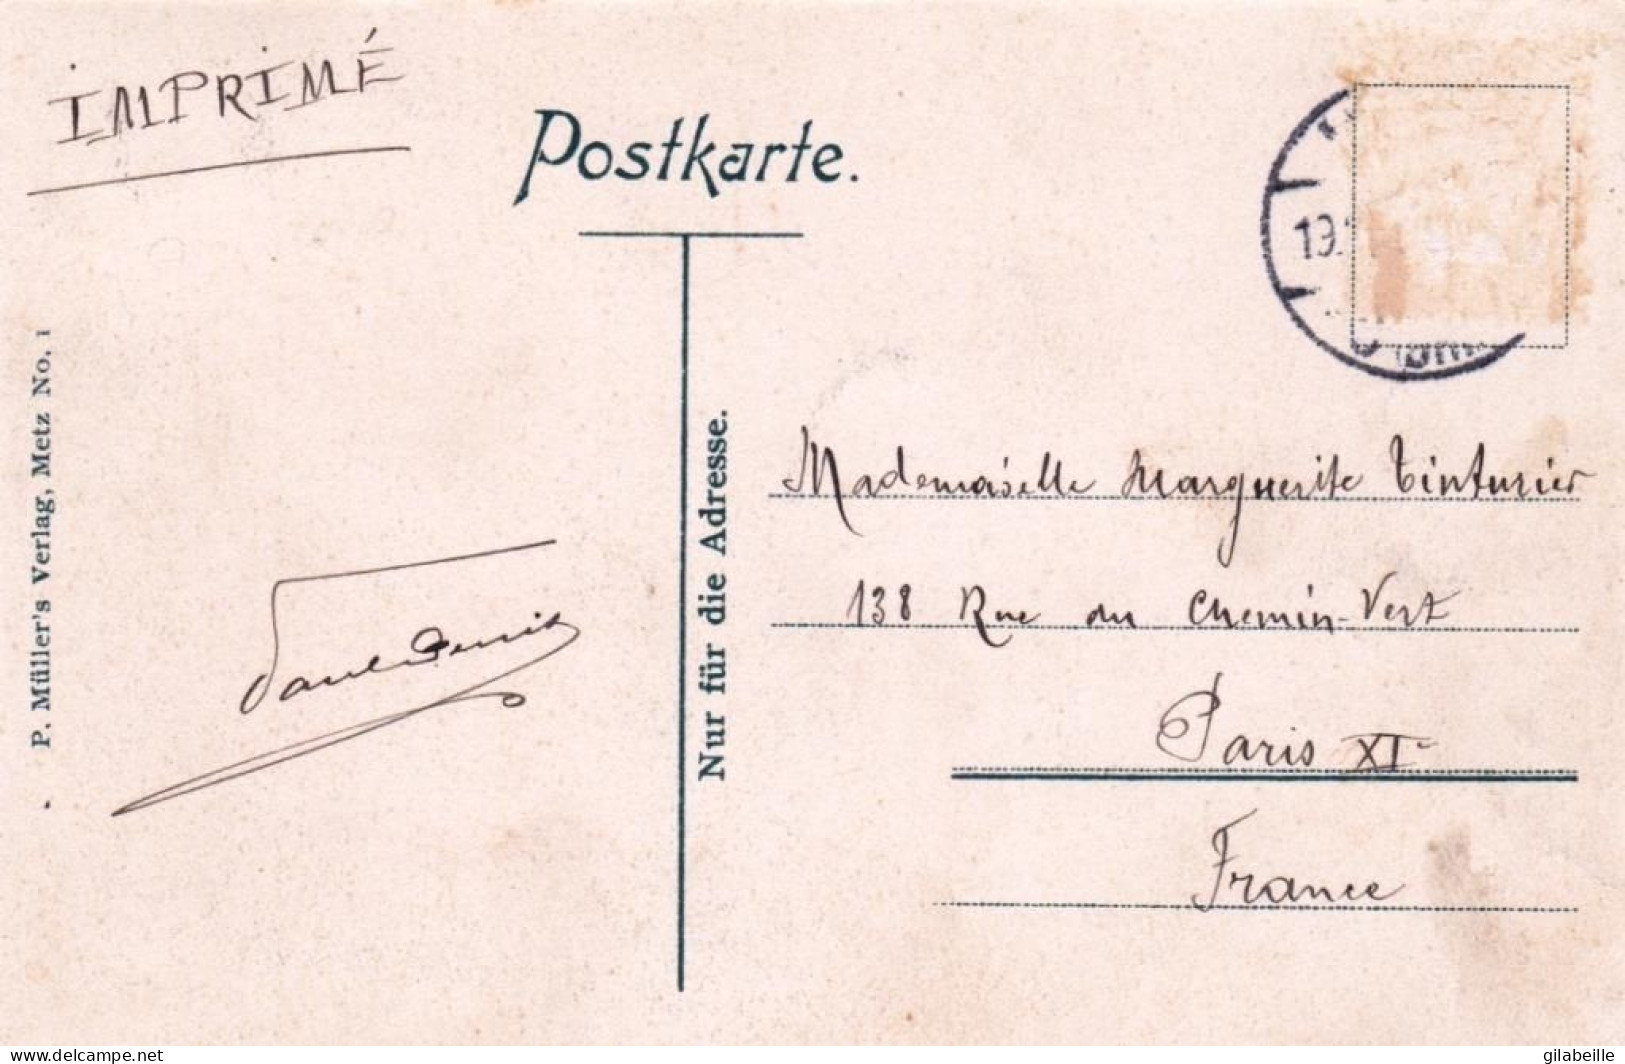 IMPRIMÉ
Postkarte.
19.
P. Müller's Verlag, Metz No. 1
Nur für die Adresse.
Mademoiselle Marguerite Tinturier
138 Rue du Chemin-Vert
Paris XIe
France
Paul Denis
www.delcampe.net
gilabeille